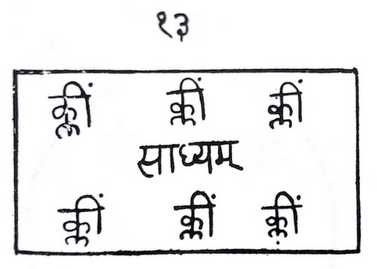 १३
क्लीं क्लीं क्लीं
साध्यम्
क्लीं क्लीं क्लीं